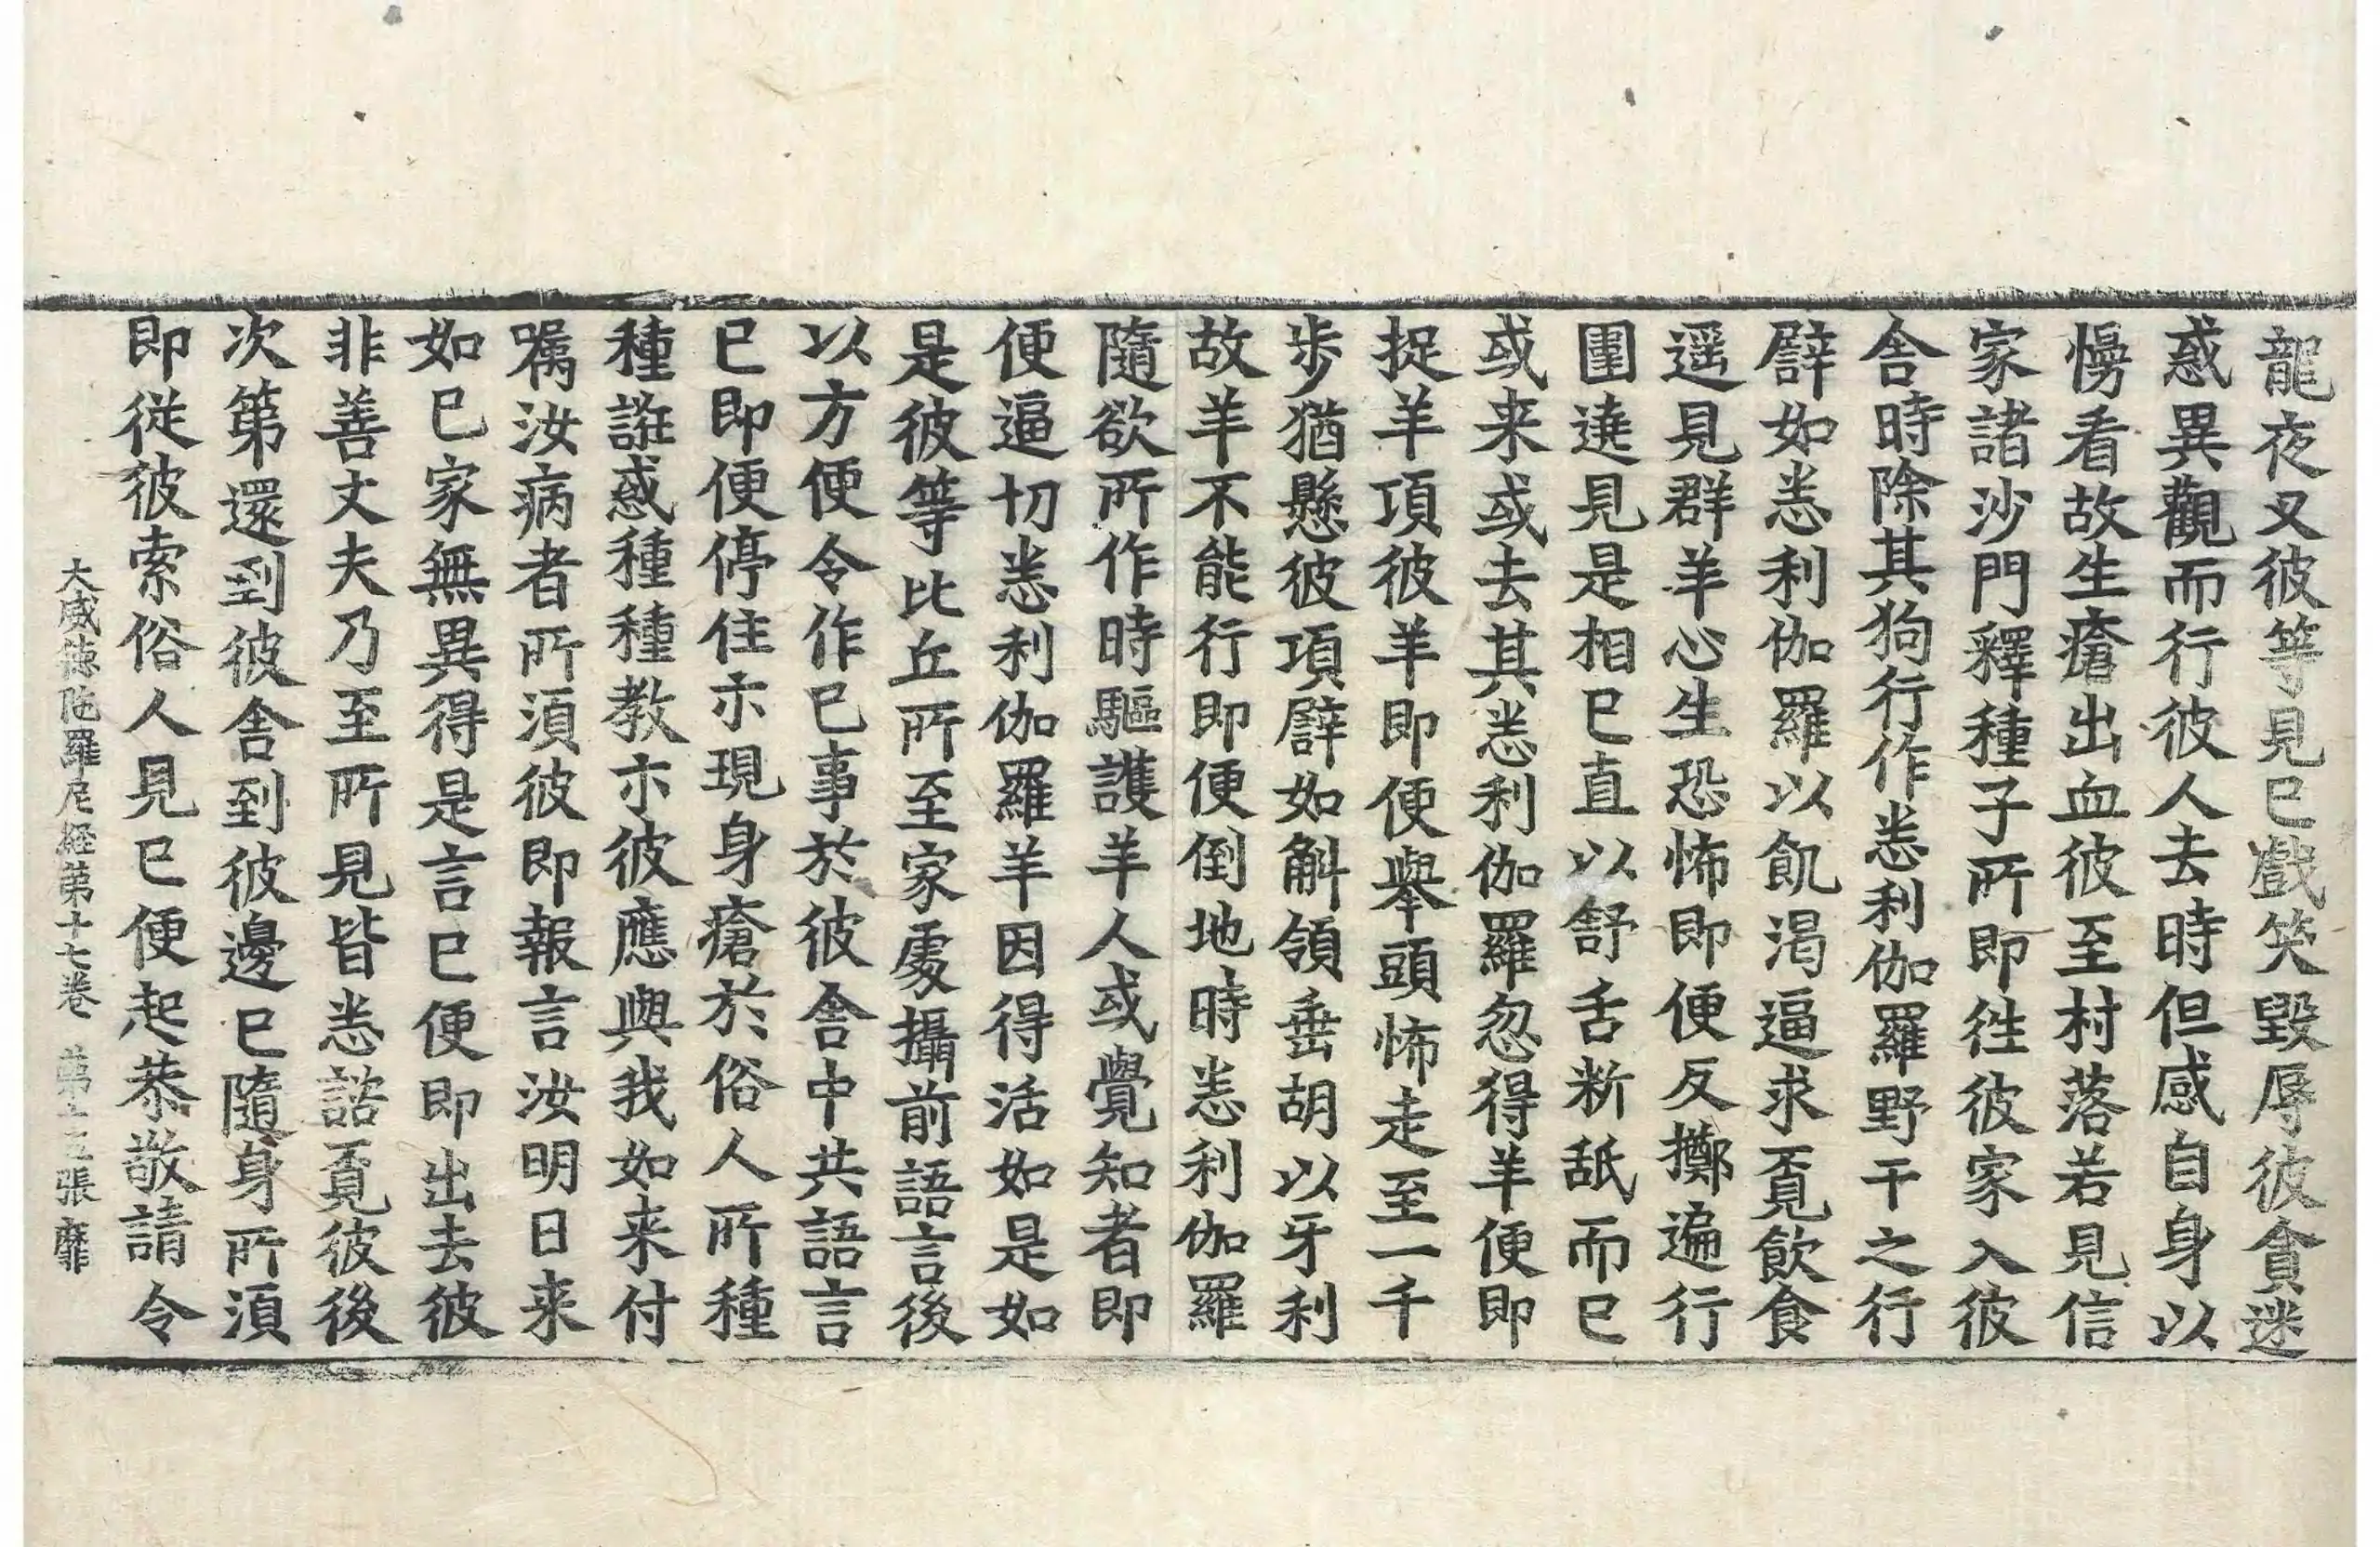 龍夜叉彼等見已戲笑毀辱彼貪迷
惑異觀而行彼人去時但感自身以
慢看故生瘡出血彼至村落若見信
家諸沙門釋種子所即徃彼家入彼
舎時除其狗行作悉利伽羅野干之行
譬如悉利伽羅以飢渴逼求覔飲食
遥見群羊心生恐怖即便反擲遍行
圍遶見是相已直以舒舌断舐而已
或来或去其悉利伽羅忽得羊便即
捉羊項彼羊即便舉頭怖走至一千
步猶懸彼項譬如斛領垂胡以牙利
故羊不能行即便倒地時悉利伽羅
隨欲所作時驅護羊人或覺知者即
便逼切悉利伽羅羊因得活如是如
是彼等比丘所至家䖏攝前語言後
以方便令作已事於彼舎中共語言
已即便停住亦現身瘡於俗人所種
種誑惑種種教亦彼應與我如来付
嘱汝病者所須彼即報言汝明日来
如已家無異得是言已便即出去彼
非善丈夫乃至所見皆悉諮覔彼後
次第還到彼舎到彼邊已隨身所須
即從彼索俗人見已便起恭敬請令
大威徳陁羅尼経第十七卷 第十三張 靡